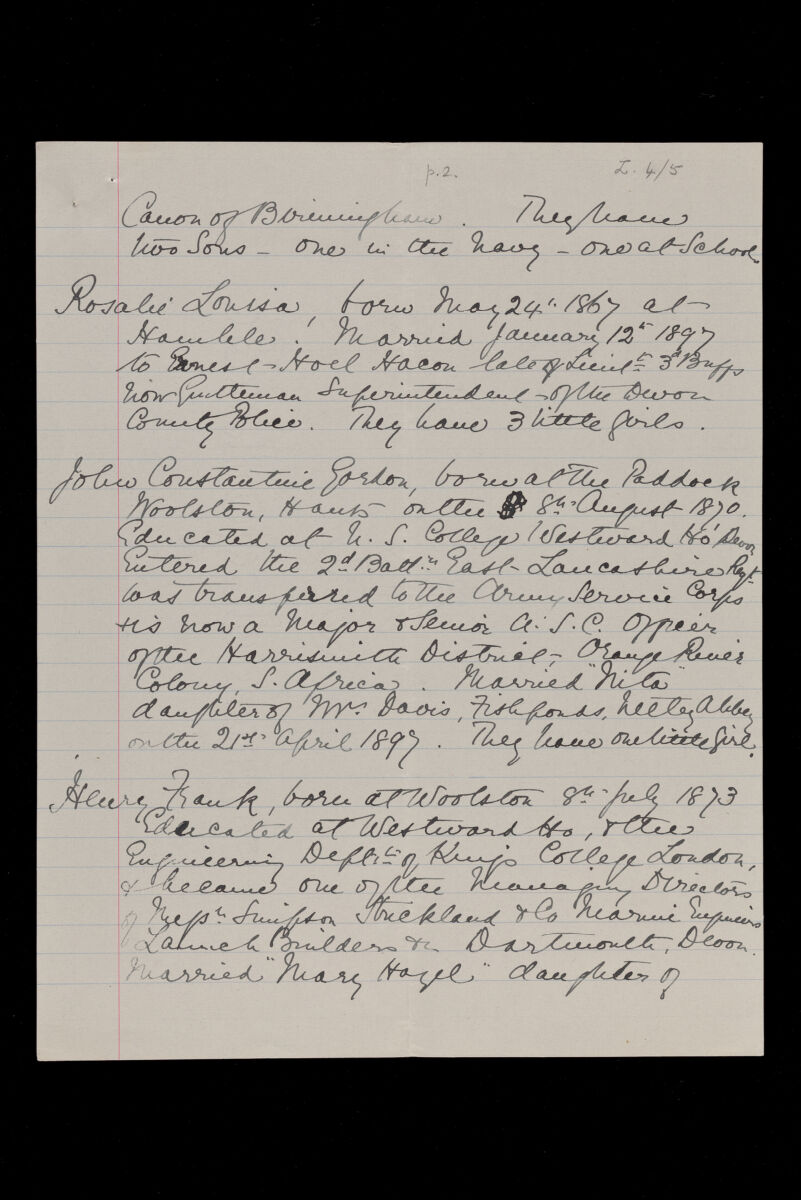 p.2. I. 4/5
Canon of Birmingham. They have
two Sons - one in the Navy - one at School.
Rosalie Louisa, born May 24th 1867 at
Hamble. Married January 12th 1897
to Ernest Noel Hacon late Lieutt 3d Buffs
now Gentleman Superintendent of the Devon
County Police. They have 3 little girls.
John Constantine Gordon, born at the Paddock
Woolston, Hants on the 8th August 1870.
Educated at U. S. College Westward Ho' Devon
Entered the 2d Battn East Lancashire Regt
was transferred to the Army Service Corps
& is now a Major & Senior A. S. C. Officer
of the Harrismith District - Orange River
Colony, S. Africa. Married "Nita"
daughter of Mrs Davis, Fishponds, Netley Abbey
on the 21st April 1897. They have one little Girl.
Henry Frank, born at Woolston 8th July 1873
Educated at Westward Ho, & the
Engineering Deptt of Kings College London,
& became one of the Managing Directors
of Messrs Simpson Strickland & Co Marine Engineers
Launch Builders &c Dartmouth, Devon.
Married "Mary Hazel" daughter of